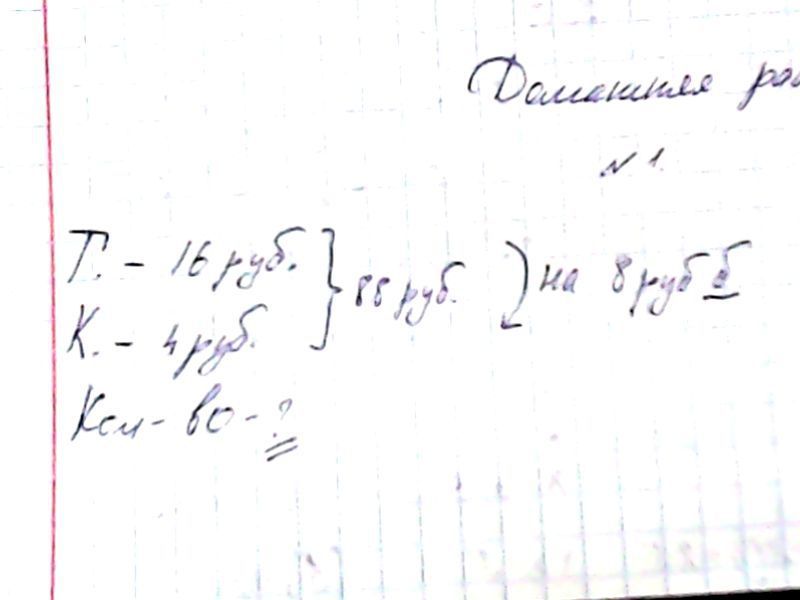 Домашняя раб
№ 1.
Т. - 16 руб. } 88 руб. ) на 8 руб б
К. - 4 руб.
Кол-во - ?